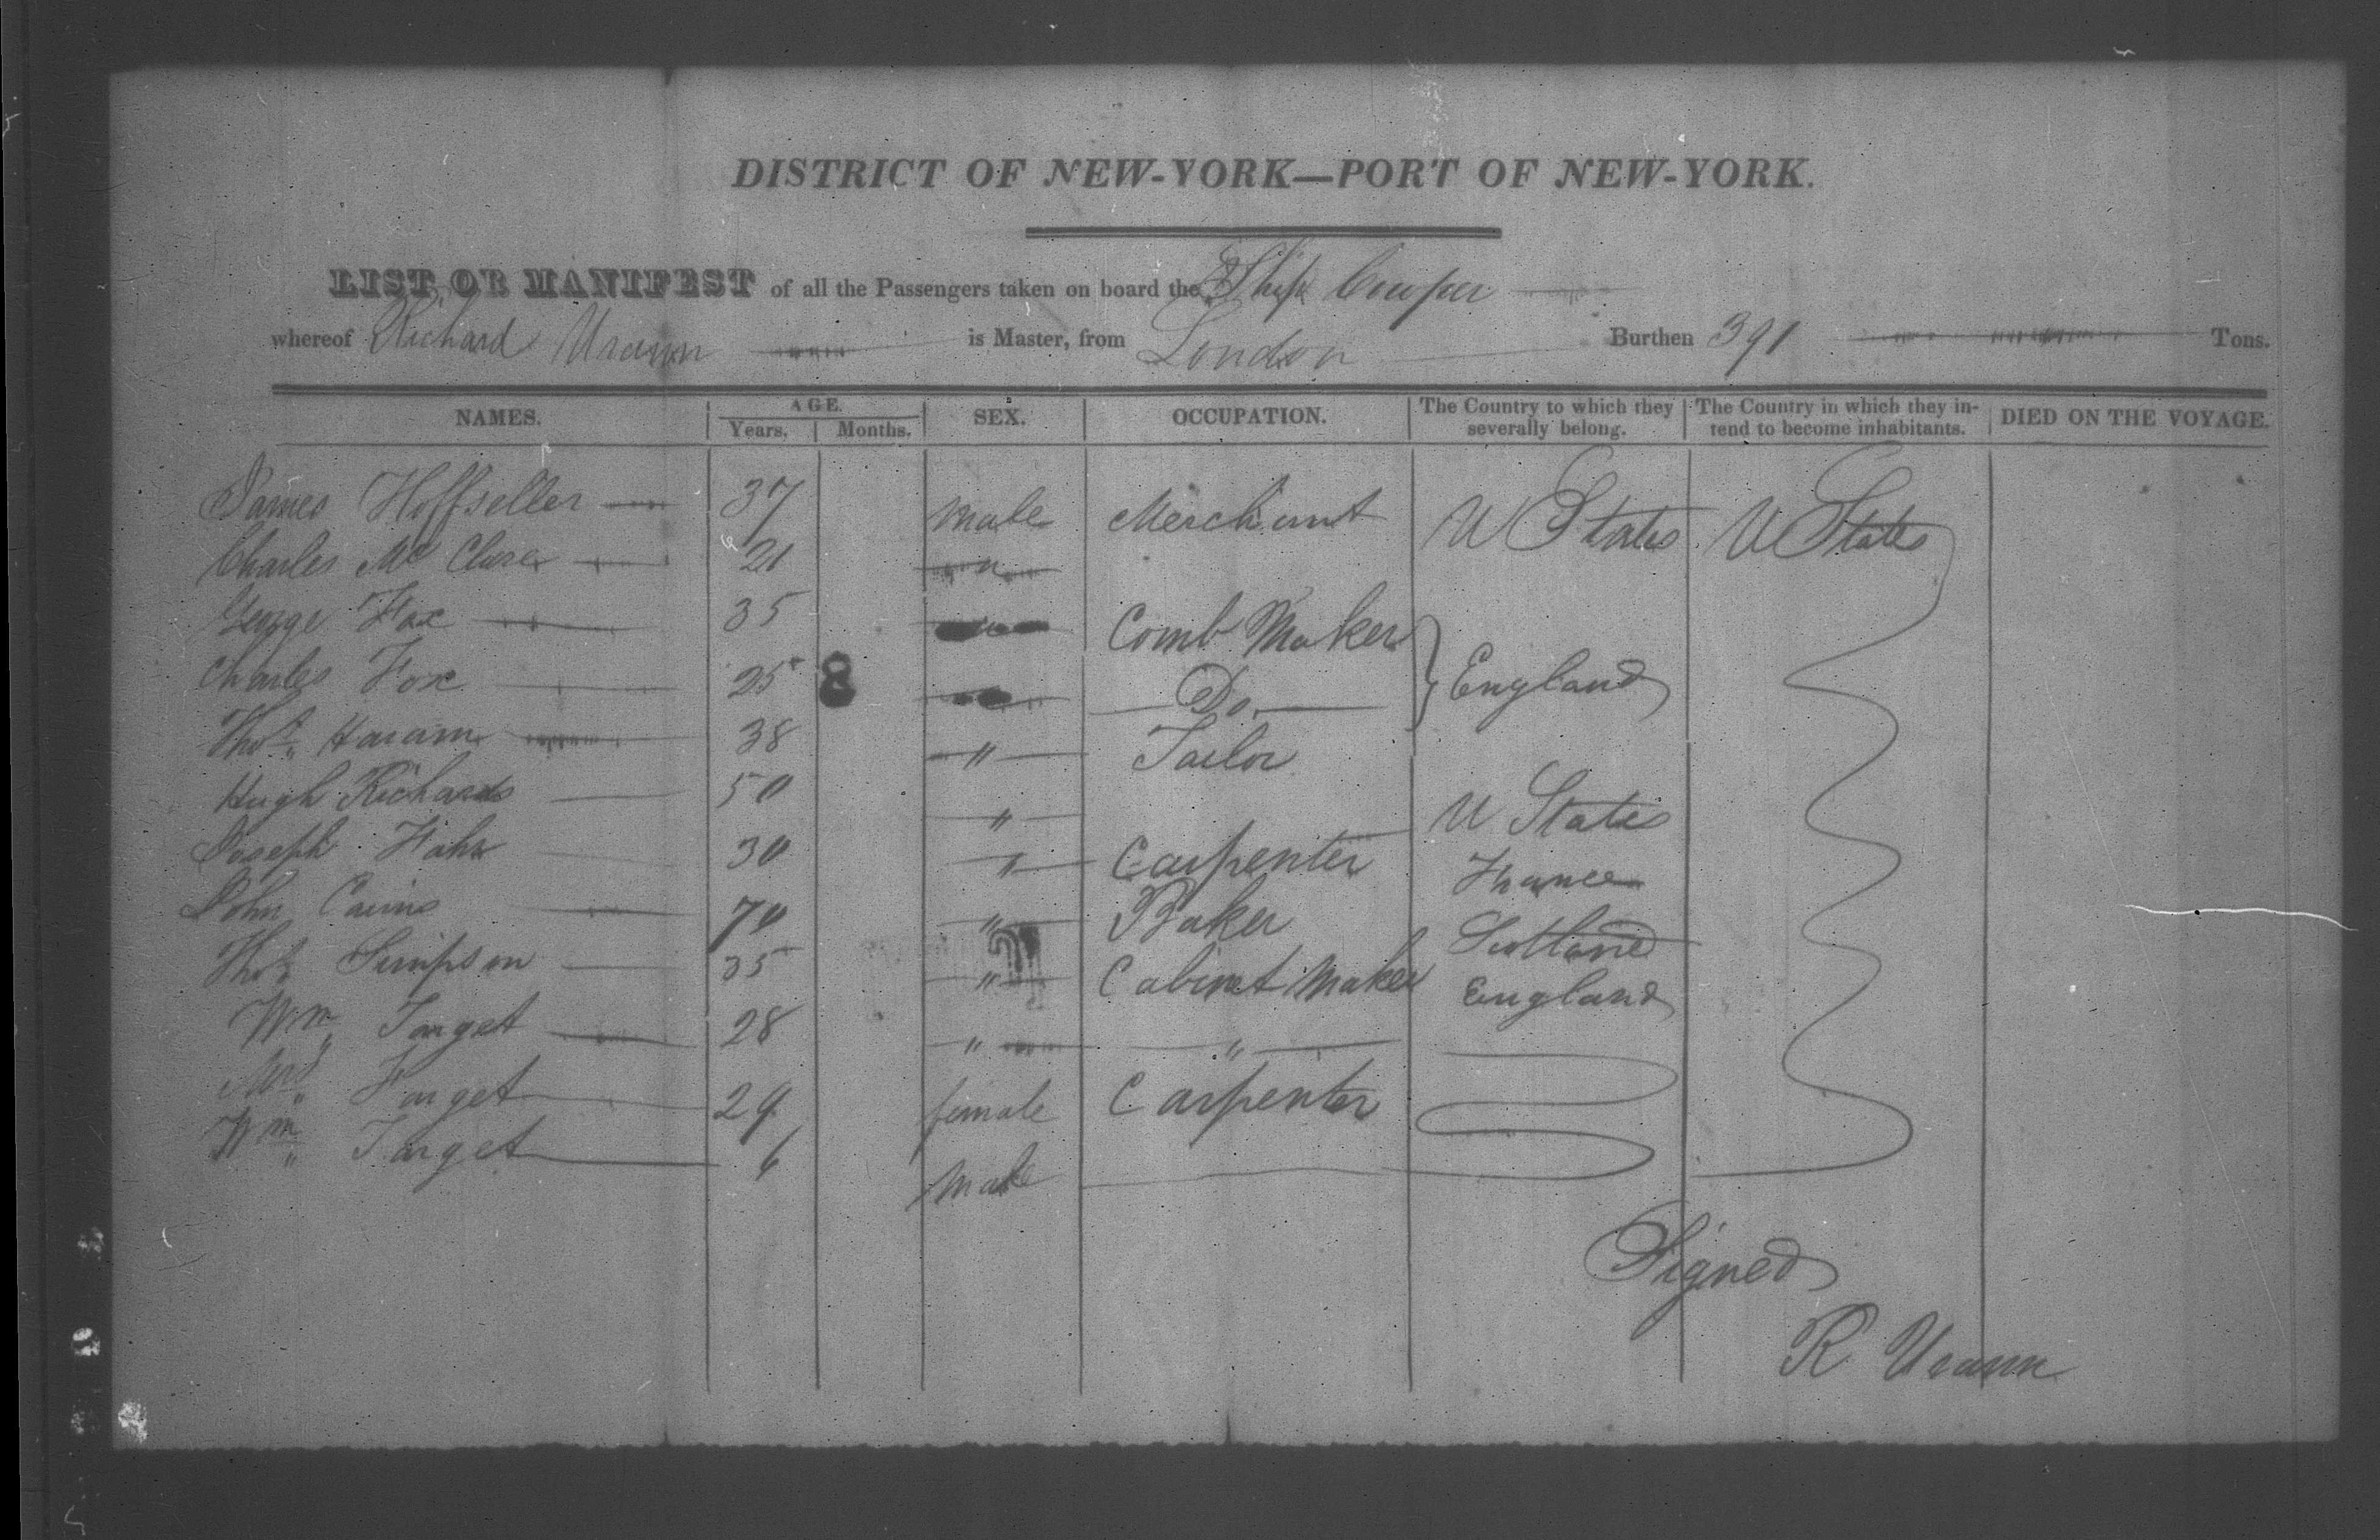 DISTRICT OF NEW-YORK—PORT OF NEW-YORK.
LIST OR MANIFEST of all the Passengers taken on board the Ship Cowper
whereof Richard Urann is Master, from London Burthen 391 Tons.
NAMES. AGE. Years. Months. SEX. OCCUPATION. The Country to which they severally belong. The Country in which they intend to become inhabitants. DIED ON THE VOYAGE.
James Hoffseller 37 Male Merchant U States U States
Charles Mc Clure 21 "
George Fox 35 Comb Maker
Charles Fox 25 8 Do. England
Thos. 38 " Tailor
Hugh Richards 50 " U States
Joseph Hahn 30 " Carpenter France
John Cairns 70 " Baker Scotland
Thos. Simpson 35 " Cabinet Maker England
Wm. Target 28 " "
Mrs. Target 29 female Carpenter
Wm. Target 6 Male
Signed
R Urann